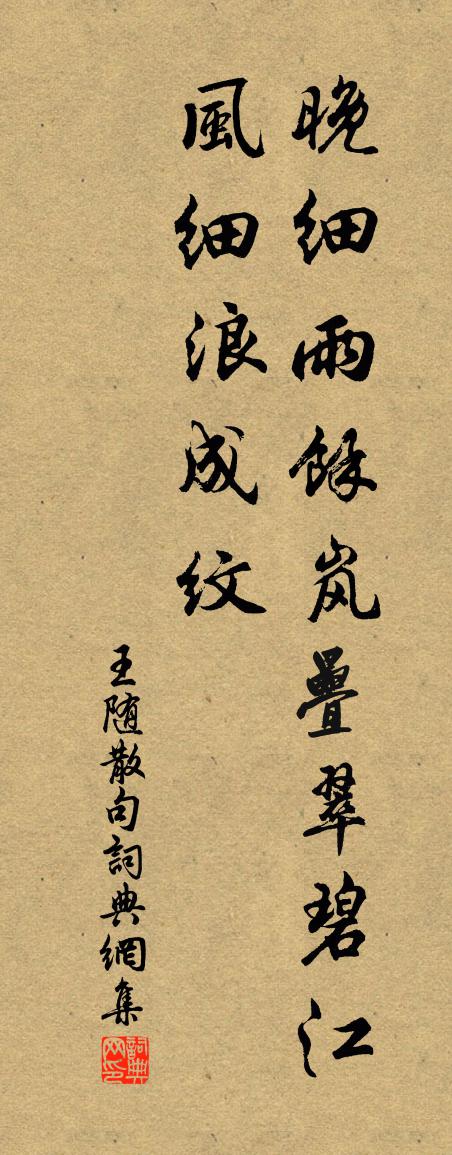 晚细雨餘岚疊翠碧江
風细浪成纹
王随散句詞典網集
詞典网印